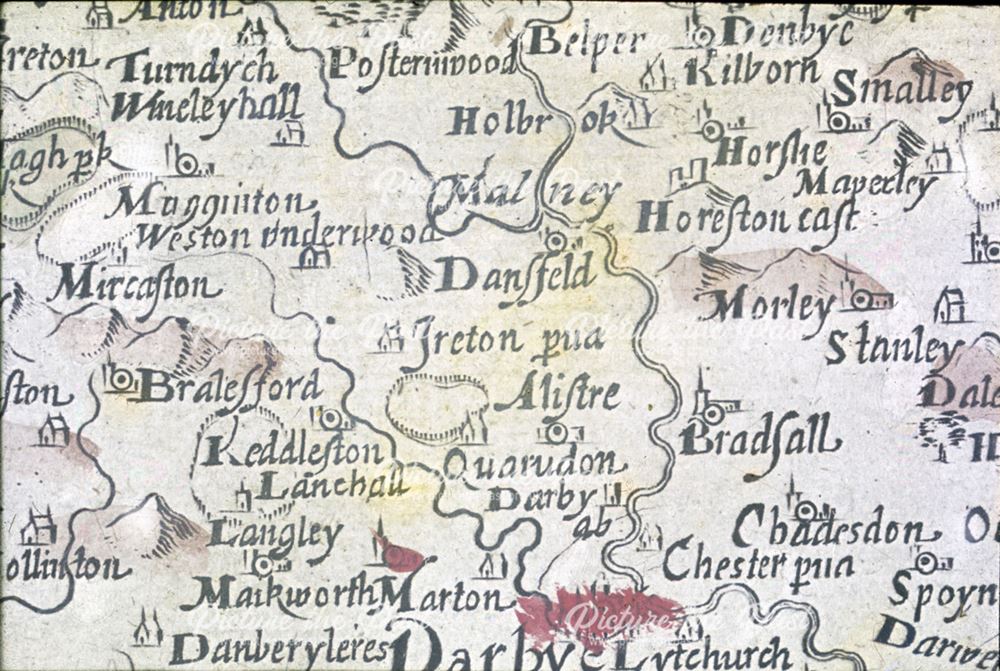 Anton
Belper
Denbye
reton
Turndych
Posternwood
Kilborn
Smalley
Wineleyhall
Holbr ok
Horsle
agh pk
Maperley
Mugginton
Malney
Horeston cast
Weston underwood
Mircaston
Dansfeld
Morley
Ireton pua
Stanley
ston
Bralesford
Alistre
Dale
Keddleston
Bradsall
Quarudon
Lanehall
Darby
ab
Langley
Chadesdon
ollinton
Chester pua
Markworth
Marton
Spoyn
Danberyleres
Darby
Lytchurch
Darwe
Picture the Past